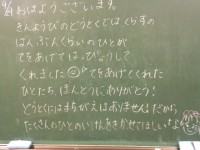 9/4 おはようございます。
きんようびのどうとくではくらすの
はんぶんくらいのひとが
てをあげてはっぴょうして
くれました てをあげてくれた
ひとたち、ほんとうにありがとう!
どうとくにはまちがえはありません!だから
たくさんのひとのいけんをきかせてほしいなぁ